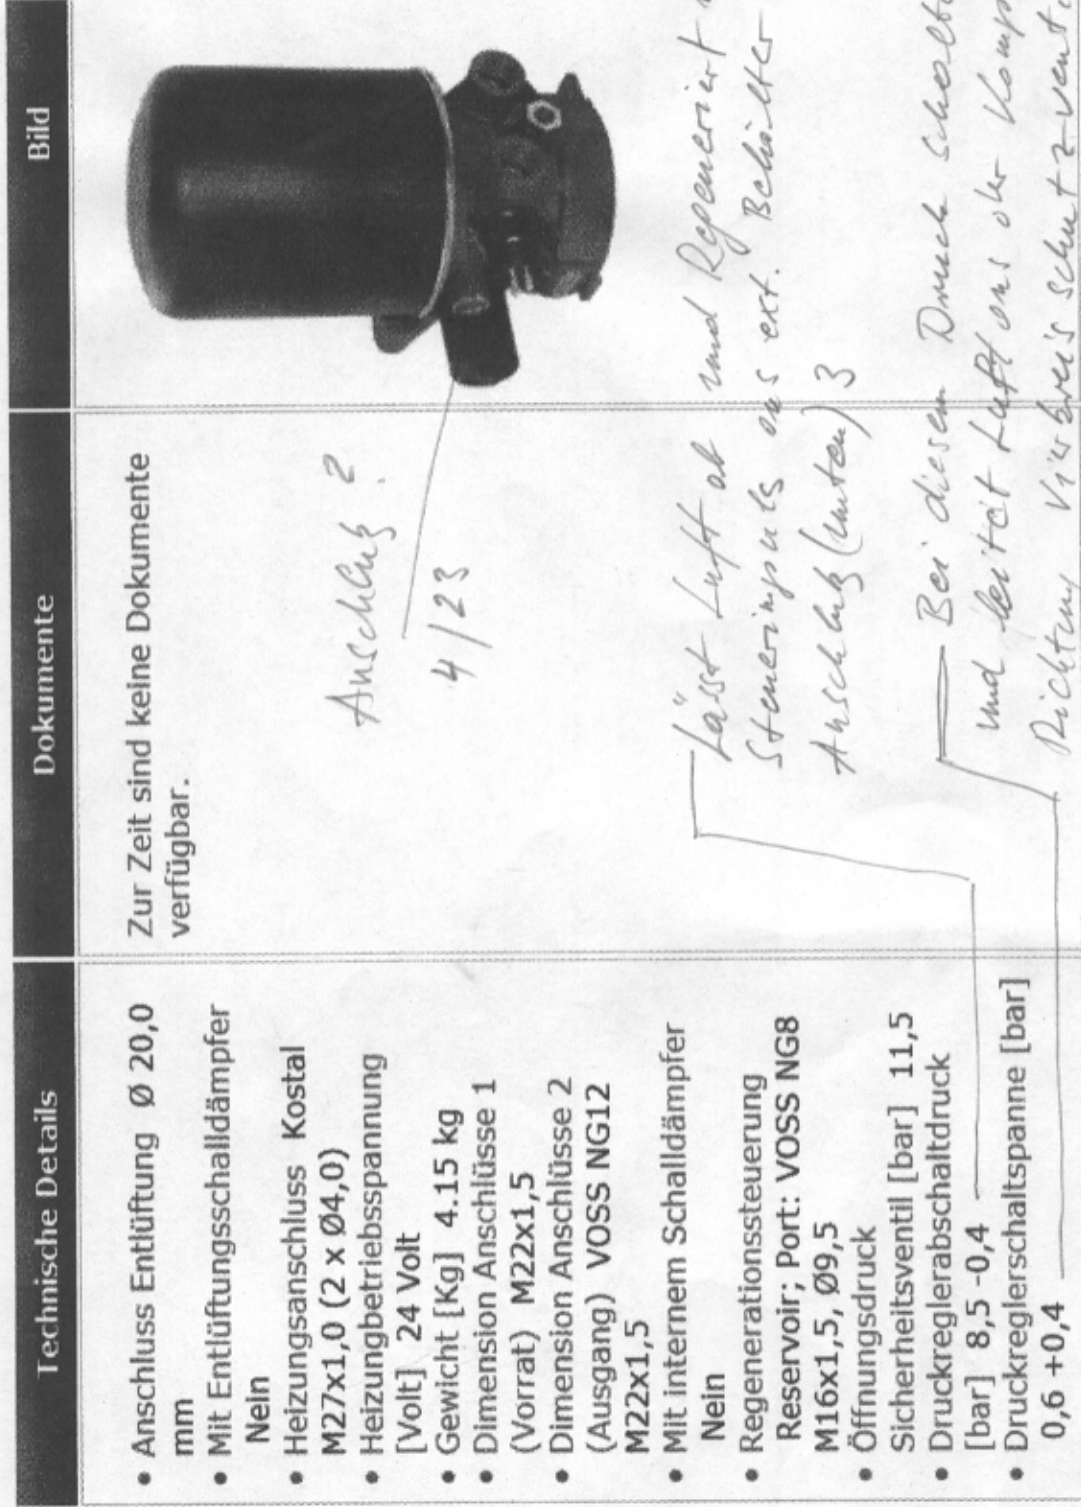 Technische Details
Dokumente
Bild
• Anschluss Entlüftung Ø 20,0
mm
• Mit Entlüftungsschalldämpfer
Nein
• Heizungsanschluss Kostal
M27x1,0 (2 x Ø4,0)
• Heizungbetriebsspannung
[Volt] 24 Volt
• Gewicht [Kg] 4.15 kg
• Dimension Anschlüsse 1
(Vorrat) M22x1,5
• Dimension Anschlüsse 2
(Ausgang) VOSS NG12
M22x1,5
• Mit internem Schalldämpfer
Nein
• Regenerationssteuerung
Reservoir; Port: VOSS NG8
M16x1,5, Ø9,5
• Öffnungsdruck
Sicherheitsventil [bar] 11,5
• Druckreglerabschaltdruck
[bar] 8,5 -0,4
• Druckreglerschaltspanne [bar]
0,6 +0,4
Zur Zeit sind keine Dokumente
verfügbar.
Anschluß ?
4/23
Lässt Luft ab und Regeneriert
Steuerimpuls aus ext. Behälter
Anschluß (unten) 3
Bei diesem Druck
und Luft aus der
Richtung Vierkreisschutzventil